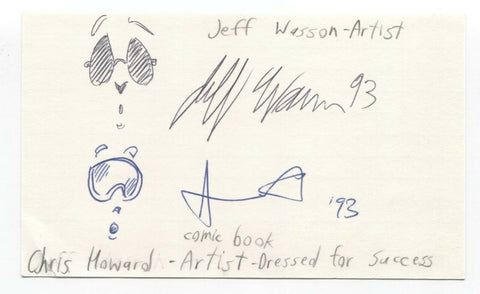 Jeff Wasson-Artist
Jeff Wasson 93
'93
comic book
Chris Howard - Artist-Dressed for Success